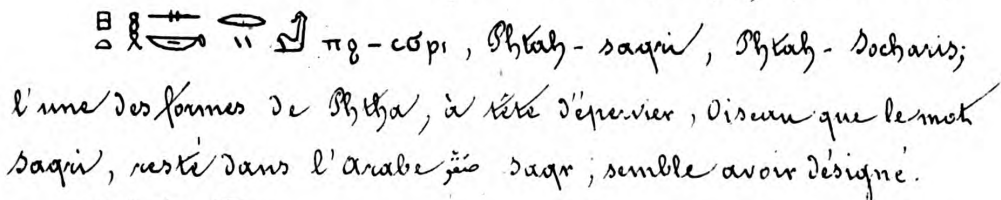 𓊪𓏏𓎛𓋴𓎡𓂋𓏭𓀭 πϩ-ⲥϭⲣⲓ, Phtah-saqri, Phtah-Socharis;
l'une des formes de Phtha, à tête d'épervier, Oiseau que le mot
saqri, resté dans l'arabe صقر saqr, semble avoir désigné.